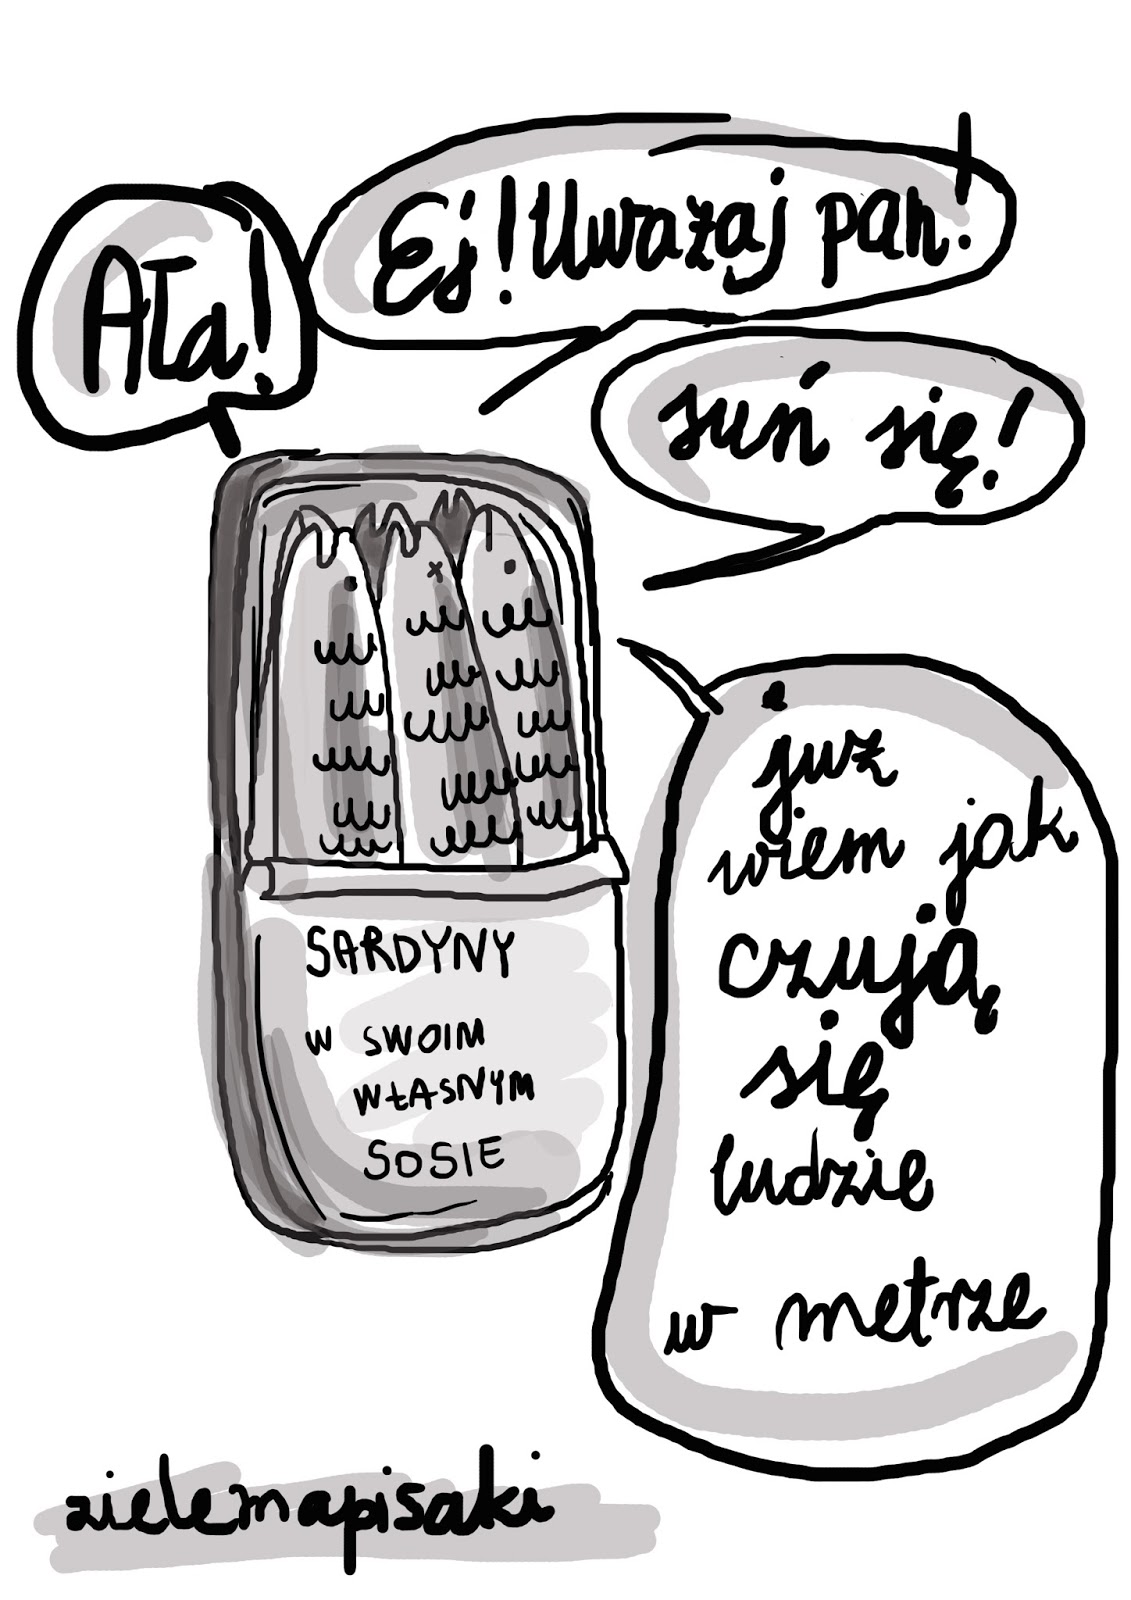 Ała!
Ej! Uważaj pan!
suń się!
już
wiem jak
czują
się
ludzie
w metrze
SARDYNY
W SWOIM
WŁASNYM
SOSIE
zielemapisaki